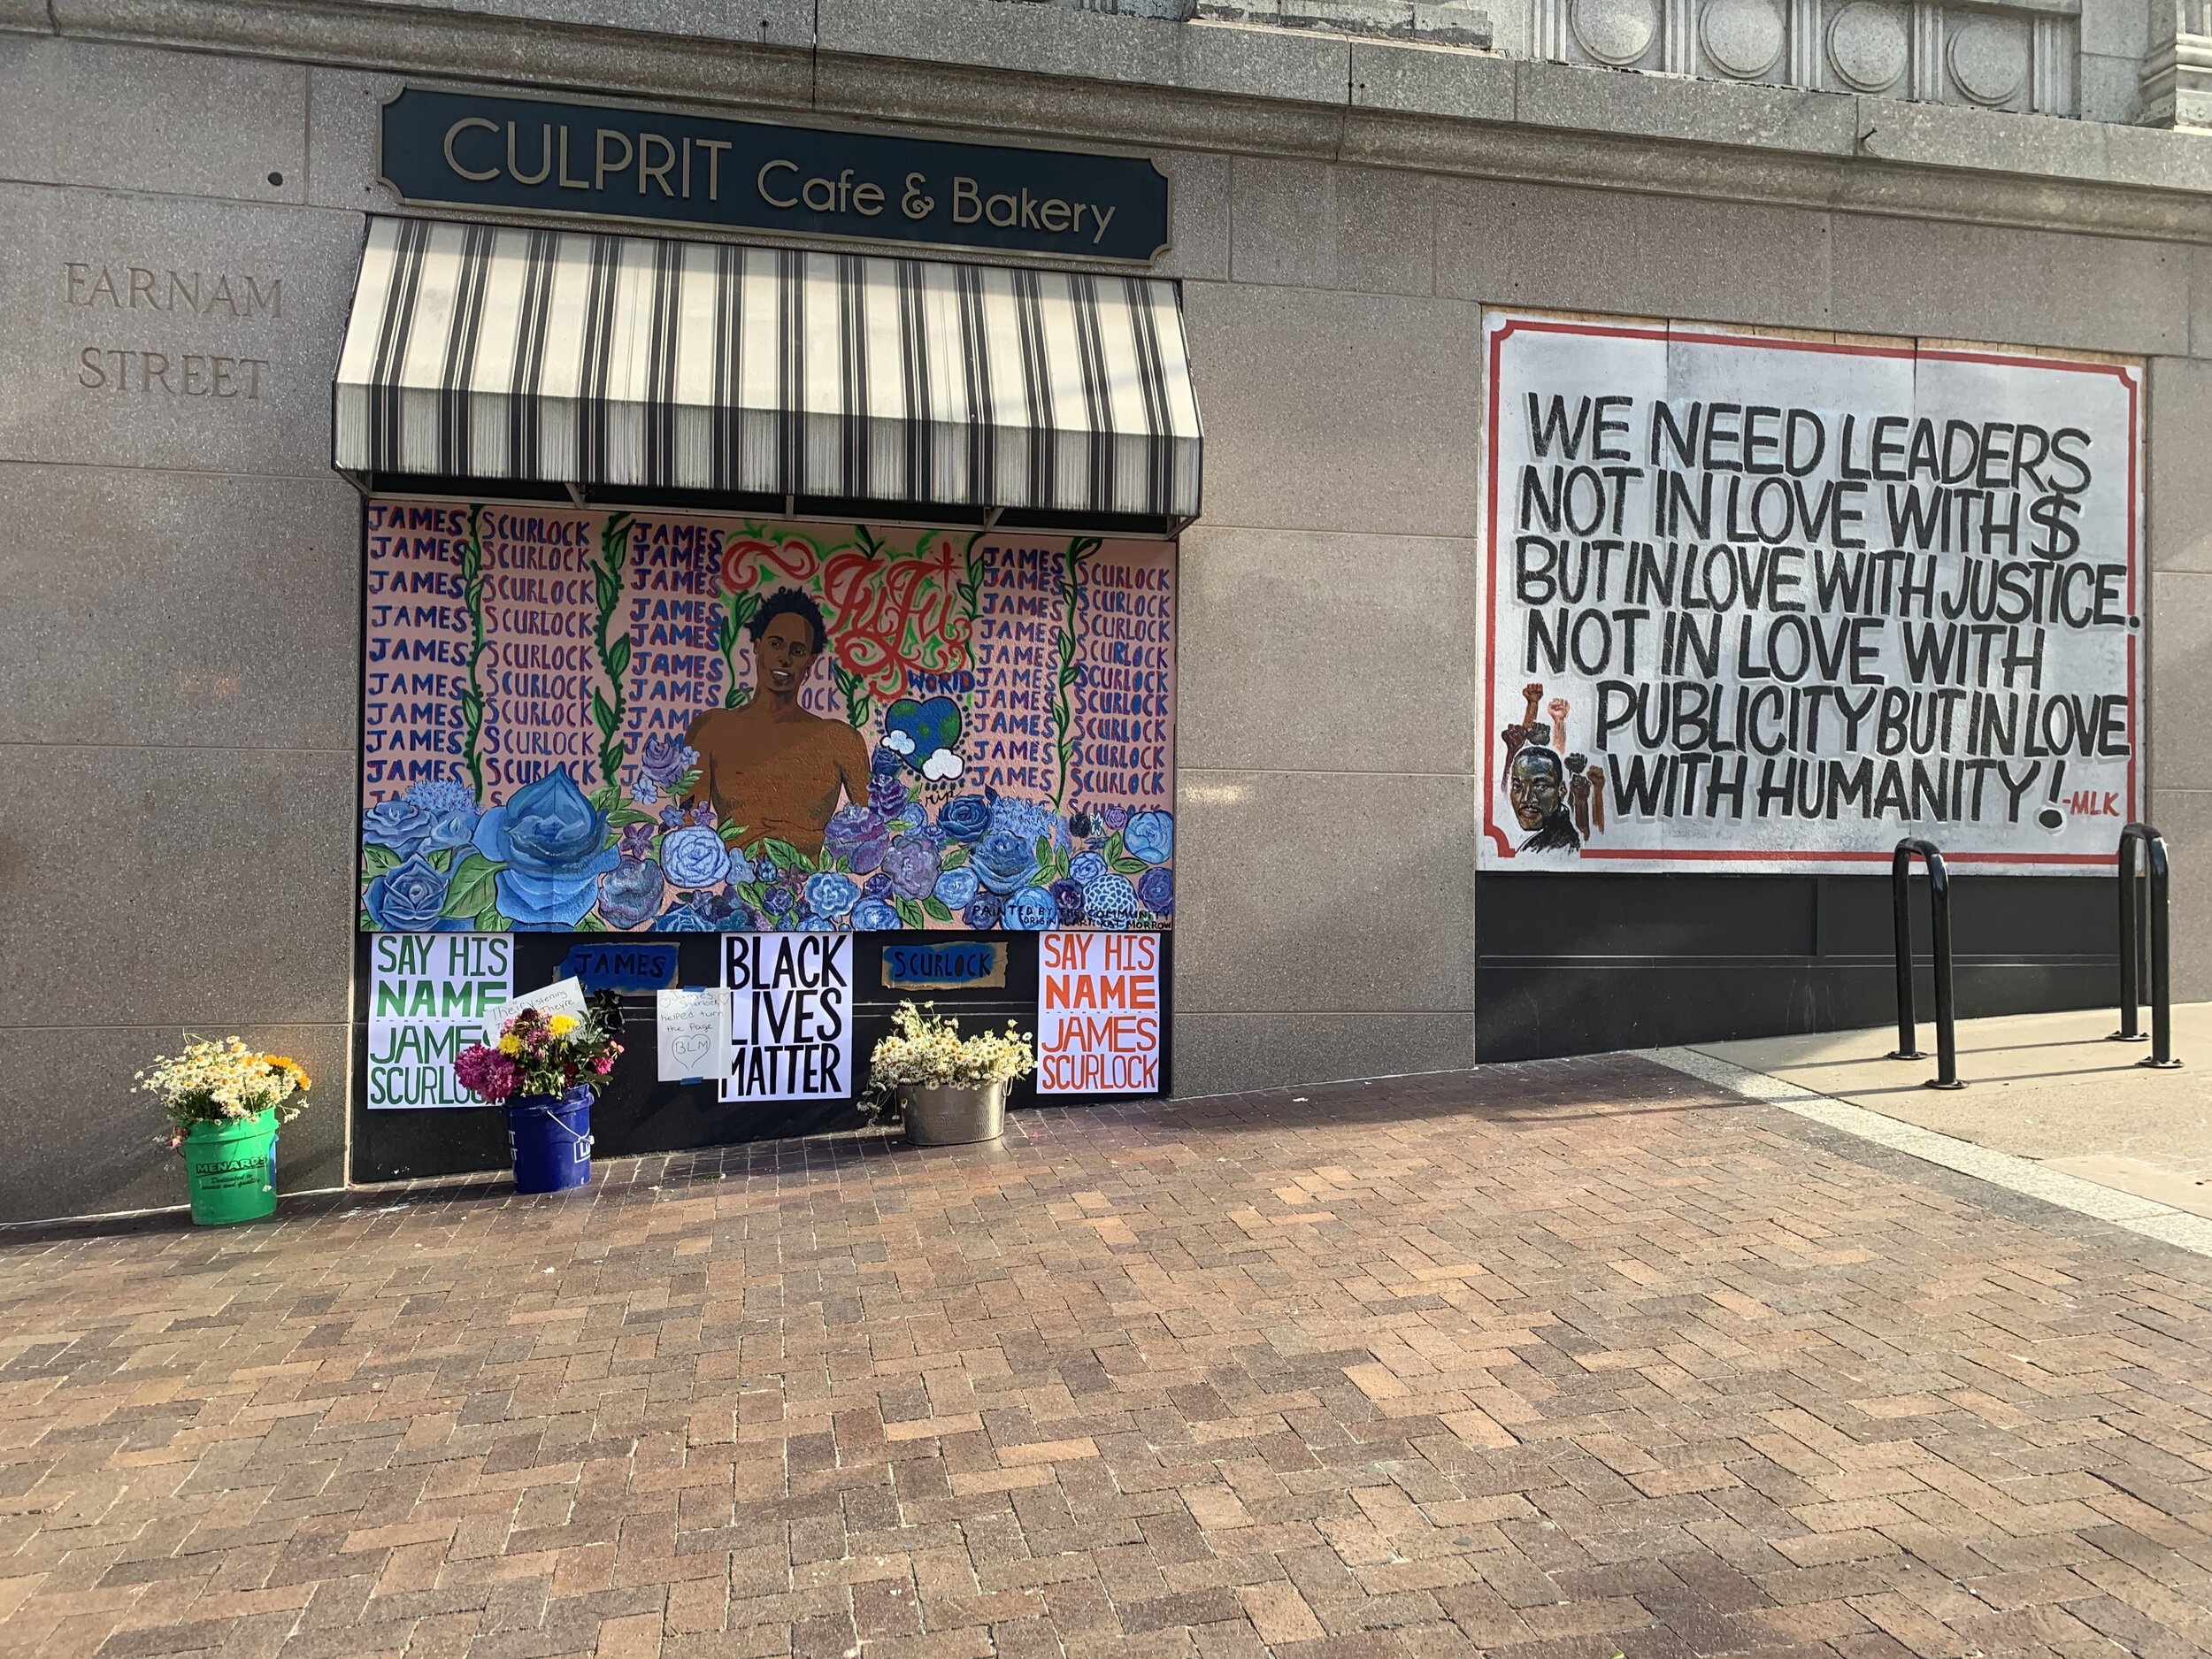 CULPRIT Cafe & Bakery
FARNAM
STREET
JAMES SCURLOCK JAMES JAMES SCURLOCK
JAMES SCURLOCK JAMES JAMES SCURLOCK
JAMES SCURLOCK JAMES JAMES SCURLOCK
JAMES SCURLOCK JAMES JAMES SCURLOCK
JAMES SCURLOCK JAMES JAMES SCURLOCK
JAMES SCURLOCK JAMES JAMES SCURLOCK
JAMES SCURLOCK JAMES JAMES SCURLOCK
JAMES SCURLOCK JAMES SCURLOCK
JAMES SCURLOCK JAMES SCURLOCK
JAMES SCURLOCK JAMES SCURLOCK
FuFu
WORLD
rip
PAINTED BY THE COMMUNITY
ORIGINAL ART: KAT MORROW
SAY HIS
NAME
JAMES
SCURLOCK
JAMES
Their listening
They're
James
Scurlock
helped turn
the Page
BLM
BLACK
LIVES
MATTER
SCURLOCK
SAY HIS
NAME
JAMES
SCURLOCK
MENARDS
Dedicated to
service and quality
WE NEED LEADERS
NOT IN LOVE WITH $
BUT IN LOVE WITH JUSTICE.
NOT IN LOVE WITH
PUBLICITY BUT IN LOVE
WITH HUMANITY!
-MLK